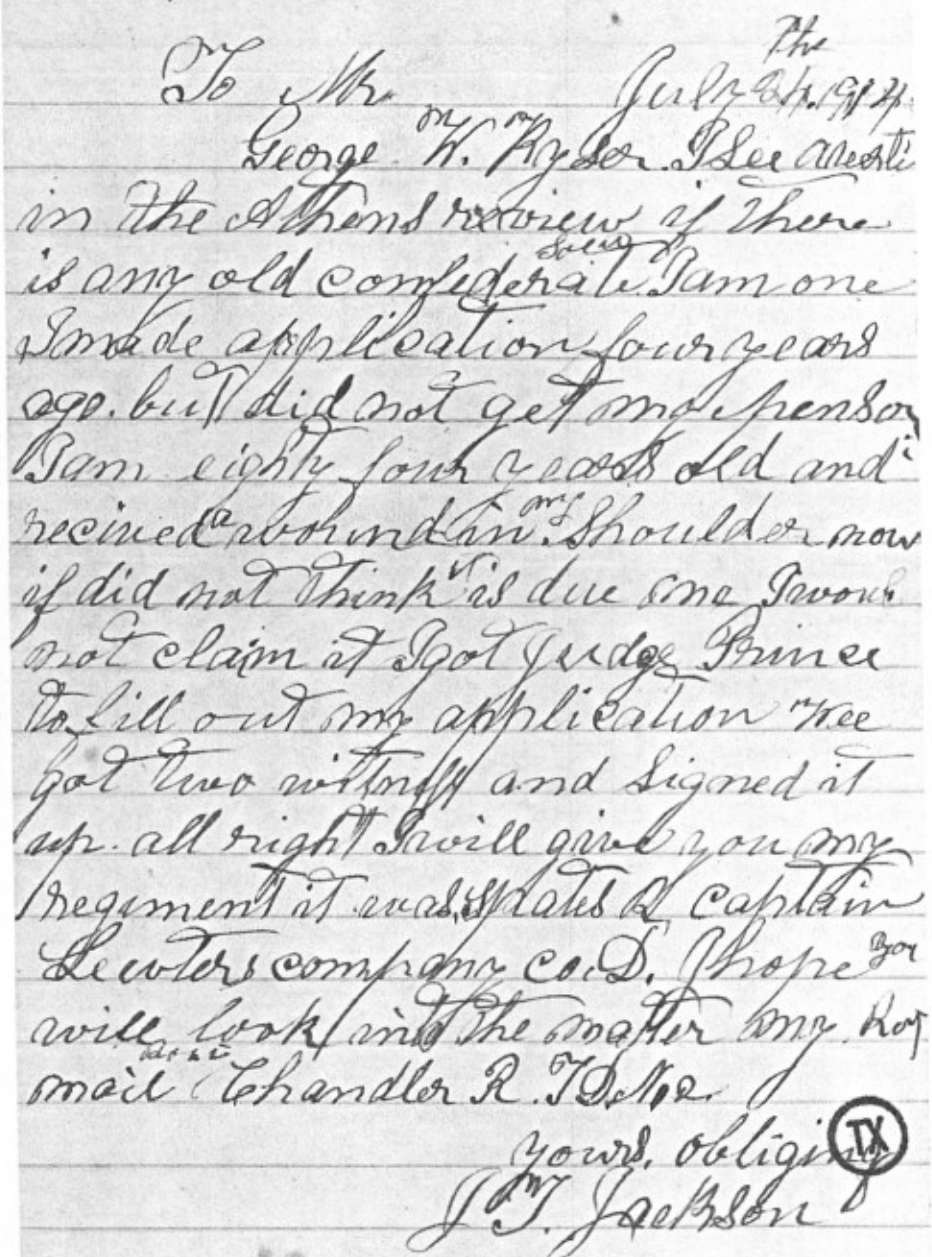 The
To Mr July 24. 1914.
George W. Ryder. I See
in the Athens review if there
is any old confederate I am one
I made application four years
ago. but I did not get my penson
I am eighty four years old and
recived a wound in my Shoulder now
if did not think it is due me I would
not claim it I got Judge Prince
to fill out my application wee
got two witness and Signed it
up. all right I will give you my
regiment it was Spaites & captain
company co. D. I hope you
will look into the matter my
mail Chandler R. F D. No 2.
yours, obliging
TX
J T. Jackson